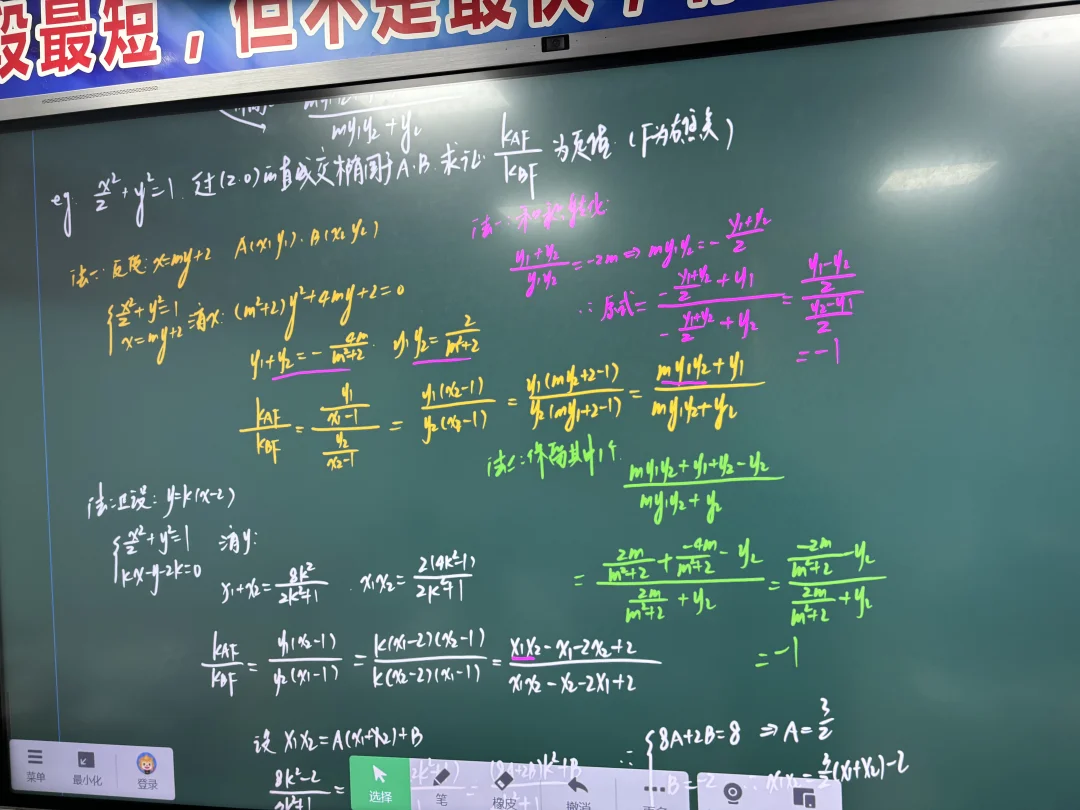 段最短，但不是最快
my₁y₂+y₂
eg: x²/2+y²=1. 过(2.0)的直线交椭圆于A.B. 求证: kAF/kBF 为定值. (F为右焦点)
法一: 反设: x=my+2 A(x₁y₁). B(x₂y₂)
{x²/2+y²=1 x=my+2 消x: (m²+2)y²+4my+2=0
y₁+y₂=-4m/(m²+2) y₁y₂=2/(m²+2)
kAF/kBF = (y₁/(x₁-1))/(y₂/(x₂-1)) = y₁(x₂-1)/y₂(x₁-1) = y₁(my₂+2-1)/y₂(my₁+2-1) = (my₁y₂+y₁)/(my₁y₂+y₂)
法一: 和积转化:
(y₁+y₂)/(y₁y₂)=-2m ⇒ my₁y₂=-(y₁+y₂)/2
∴ 原式=(-(y₁+y₂)/2+y₁)/(-(y₁+y₂)/2+y₂)=((y₁-y₂)/2)/((y₂-y₁)/2)
=-1
法二: 保留其中1个.
(my₁y₂+y₁+y₂-y₂)/(my₁y₂+y₂)
=(2m/(m²+2)+(-4m)/(m²+2)-y₂)/(2m/(m²+2)+y₂)=(-2m/(m²+2)-y₂)/(2m/(m²+2)+y₂)
=-1
法二: 正设: y=k(x-2)
{x²/2+y²=1 kx-y-2k=0 消y:
x₁+x₂=8k²/(2k²+1) . x₁x₂=2(4k²-1)/(2k²+1)
kAF/kBF = y₁(x₂-1)/y₂(x₁-1) = k(x₁-2)(x₂-1)/k(x₂-2)(x₁-1) = (x₁x₂-x₁-2x₂+2)/(x₁x₂-x₂-2x₁+2)
设 x₁x₂=A(x₁+x₂)+B
(8k²-2)/(2k²+1)=
∴ {8A+2B=8 B=-2 ⇒ A=3/2
∴ x₁x₂=3/2(x₁+x₂)-2
菜单
最小化
登录
选择
笔
橡皮
撤消